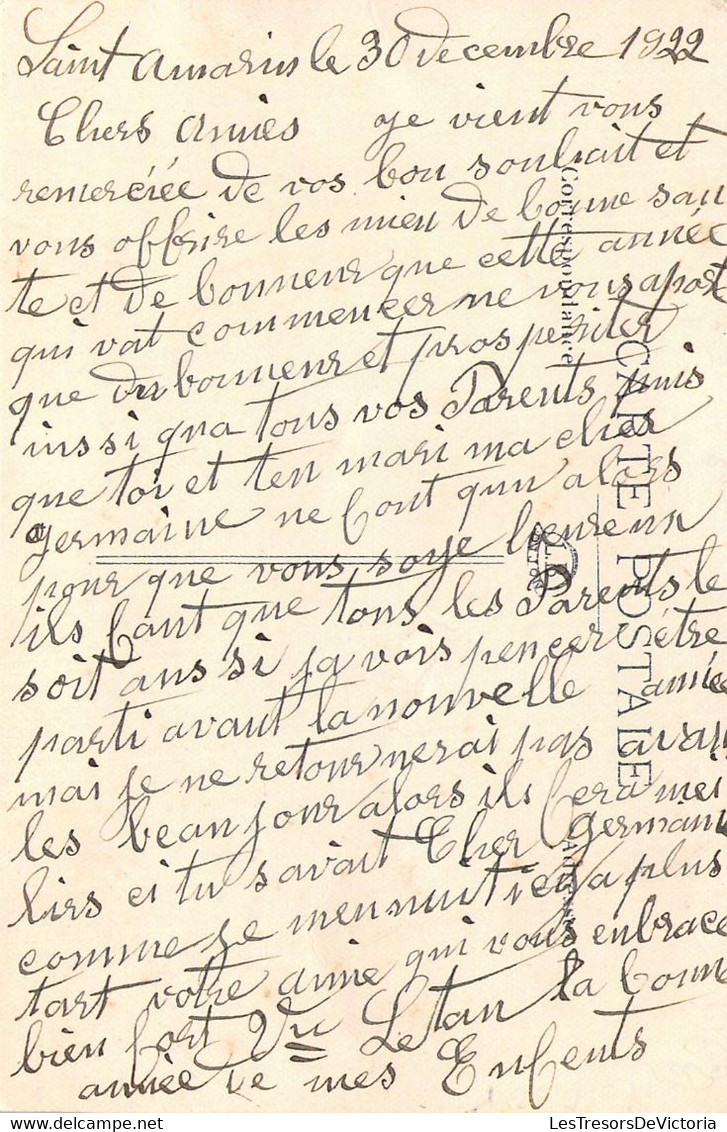 Saint Amarin le 30 decembre 1922
Chers amies je vient vous
remerciée de vos bon souhait et
vous offrire les mieu de bonne san
te et de bonneur que cette année
qui vat commencer ne vous aport
que du bonneur et prosperiter
inssi qua tous vos Parents puis
que toi et ten mari ma cher
germaine ne font qun alors
pour que vous soye heureux
ils faut que tous les Parents le
soit ans si ja vois pencer être
parti avant la nouvelle année
mai je ne retournerai pas avan
les beau jour alors ils fera mei
lirs ci tu savait Cher germain
comme je mennuit ici a plus
tart votre amie qui vous enbrace
bien fort Vu Letan la bonne
année de mes Enfents
CARTE POSTALE
Correspondance
LesTresorsDeVictoria